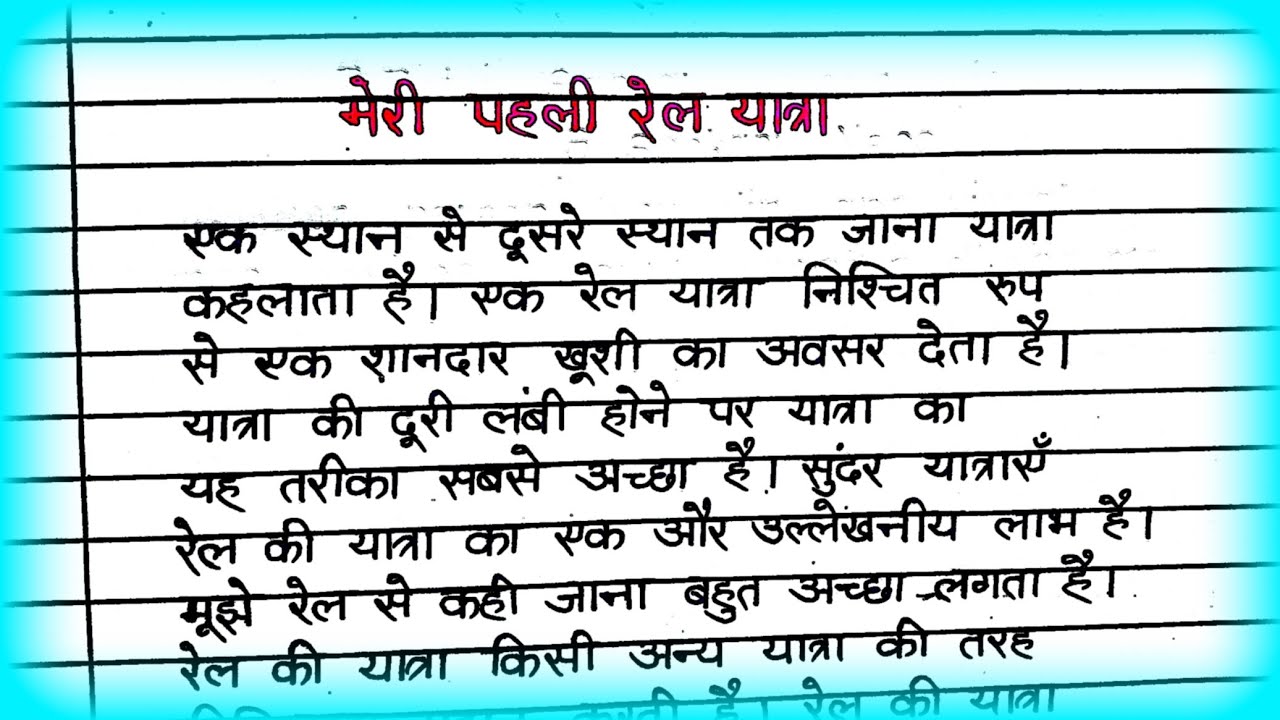 मेरी पहली रेल यात्रा
एक स्थान से दूसरे स्थान तक जाना यात्रा
कहलाता है। एक रेल यात्रा निश्चित रुप
से एक शानदार खूशी का अवसर देता है।
यात्रा की दूरी लंबी होने पर यात्रा का
यह तरीका सबसे अच्छा है। सुंदर यात्राएँ
रेल की यात्रा का एक और उल्लेखनीय लाभ है।
मूझे रेल से कही जाना बहुत अच्छा लगता है।
रेल की यात्रा किसी अन्य यात्रा की तरह
करती है। रेल की यात्रा